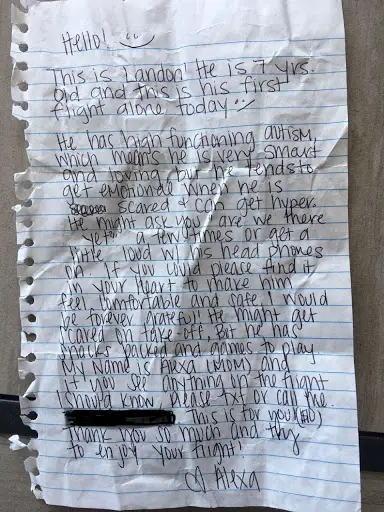 Hello! :)
This is Landon! He is 7 yrs.
Old and this is his first
flight alone today :)
He has high functioning autism,
which means he is very smart
and loving but he tends to
get emotional when he is
scared & can get hyper.
He might ask you "are we there
yet" a few times or get a
little loud w/ his head phones
on. If you could please find it
in your heart to make him
feel comfortable and safe, I would
be forever grateful! He might get
scared on take-off, But he has
snacks packed and games to play.
My name is Alexa (mom) and
if you see anything on the flight
I should know please txt or call me.
This is for you! ($10)
Thank you so much and try
to enjoy your flight!
♡ Alexa